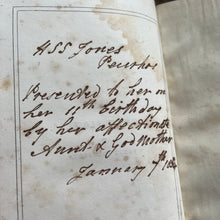 HSS Jones
Penrhos
Presented to her on
her 11th birthday
by her affectionate
Aunt & God Mother
January 7th